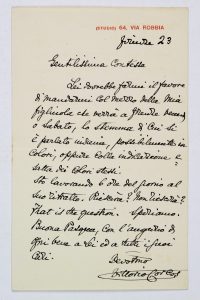 64, VIA ROBBIA
Firenze 23
Gentilissima Contessa
Lei dovrebbe farmi il favore
di mandarmi col mezzo della mia
figliuola che verrà a prendere
o sabato, lo stemma di cui si
è parlato insieme, possibilmente in
colori, oppure colla indicazione e-
satta dei colori stessi.
Sto lavorando 6 ore del giorno al
suo ritratto. Riescirà? Non riescirà?
That is the question. Speriamo.
Buona Pasqua, con l'augurio di
ogni bene a Lei ed a tutti i suoi
cari.
Devotmo
Vittorio Corcos